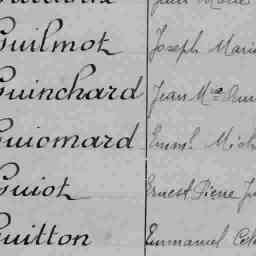 Guilmot Joseph Mari
Guinchard Jean M
Guiomard Emml Mich
Guiot Ernest Pierre
Guitton Emmanuel Cel